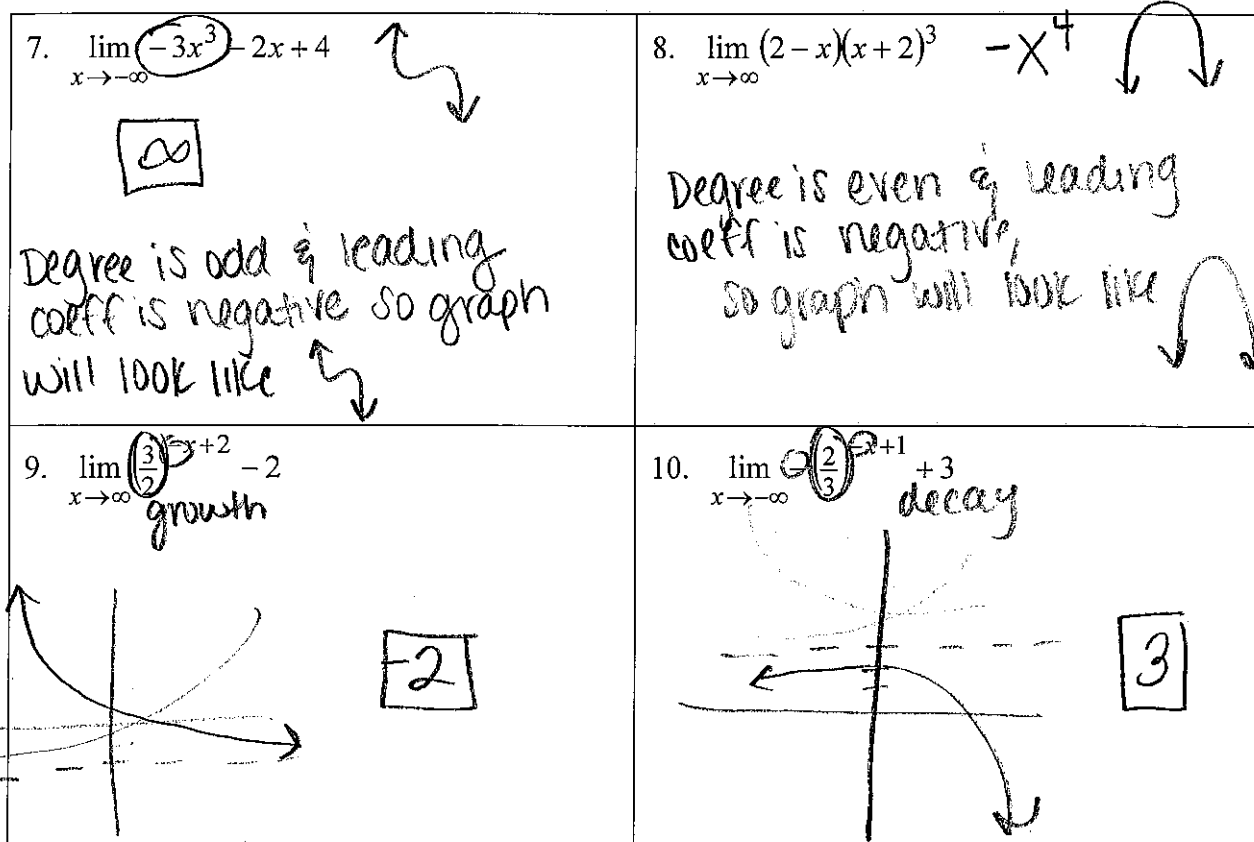 7. lim x→-∞ -3x³ - 2x + 4
∞
Degree is odd & leading
coeff is negative so graph
will look like
8. lim x→∞ (2-x)(x+2)³ -x⁴
Degree is even & leading
coeff is negative,
so graph will look like
9. lim x→∞ (3/2)^(-x+2) - 2
growth
-2
10. lim x→-∞ -(2/3)^(-x+1) + 3
decay
3